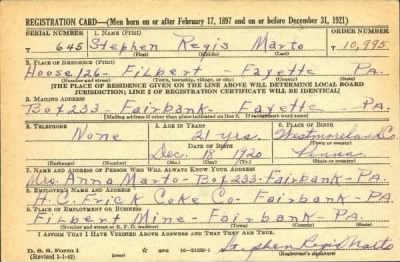 REGISTRATION CARD—(Men born on or after February 17, 1897 and on or before December 31, 1921)
SERIAL NUMBER 1. NAME (Print) ORDER NUMBER
T 645 Stephen Regis Marto T 10,995
(First) (Middle) (Last)
2. PLACE OF RESIDENCE (Print)
House 126 - Filbert - Fayette PA.
(Number and street) (Town, township, village, or city) (County) (State)
[THE PLACE OF RESIDENCE GIVEN ON THE LINE ABOVE WILL DETERMINE LOCAL BOARD
JURISDICTION; LINE 2 OF REGISTRATION CERTIFICATE WILL BE IDENTICAL]
3. MAILING ADDRESS
Box 233 - Fairbank - Fayette - PA.
[Mailing address if other than place indicated on line 2. If same insert word same]
4. TELEPHONE 5. AGE IN YEARS 6. PLACE OF BIRTH
None 21 yrs. Westmoreland Co.
DATE OF BIRTH (Town or county)
Dec. 1920 Penna
(Exchange) (Number) (Mo.) (Day) (Yr.) (State or country)
7. NAME AND ADDRESS OF PERSON WHO WILL ALWAYS KNOW YOUR ADDRESS
Mrs. Anna Marto - Box 233 - Fairbank - PA.
8. EMPLOYER'S NAME AND ADDRESS
H. C. Frick Coke Co - Fairbank - PA.
9. PLACE OF EMPLOYMENT OR BUSINESS
Filbert Mine - Fairbank - PA.
(Number and street or R. F. D. number) (Town) (County) (State)
I AFFIRM THAT I HAVE VERIFIED ABOVE ANSWERS AND THAT THEY ARE TRUE.
D. S. S. Form 1 GPO Stephen Regis Marto
(Revised 1-1-42) (Registrant's signature)